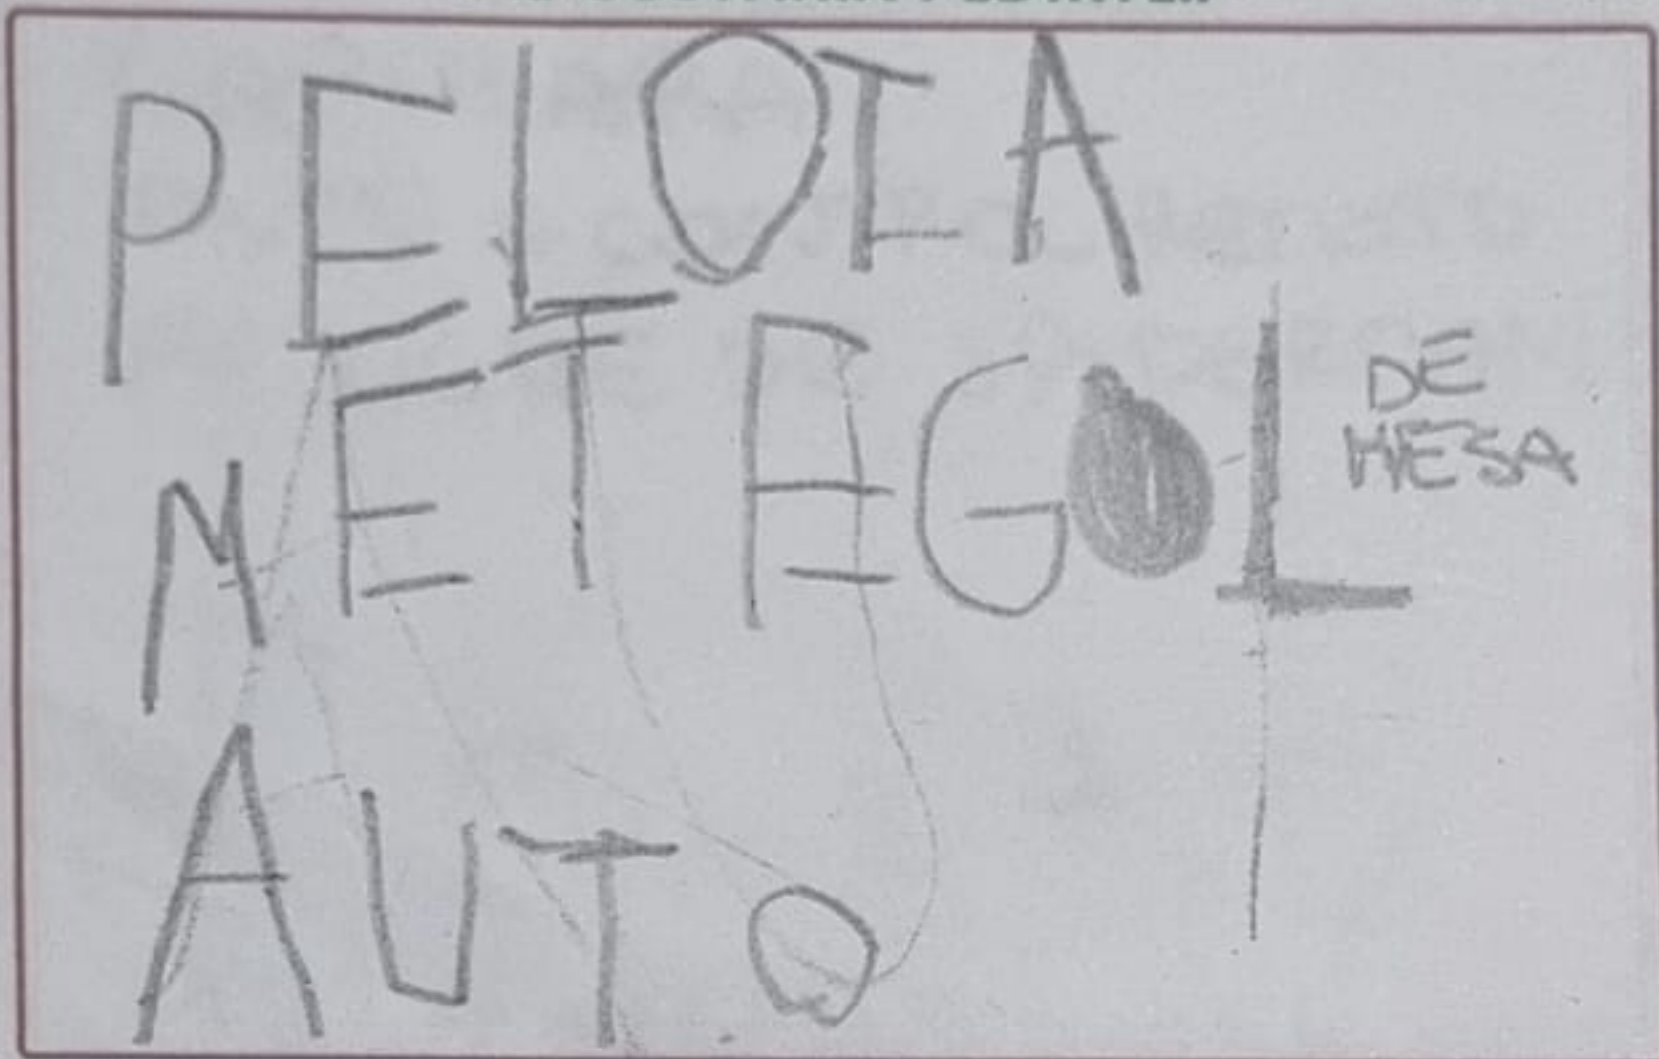 PELOTA
METEGOL DE MESA
AUTO